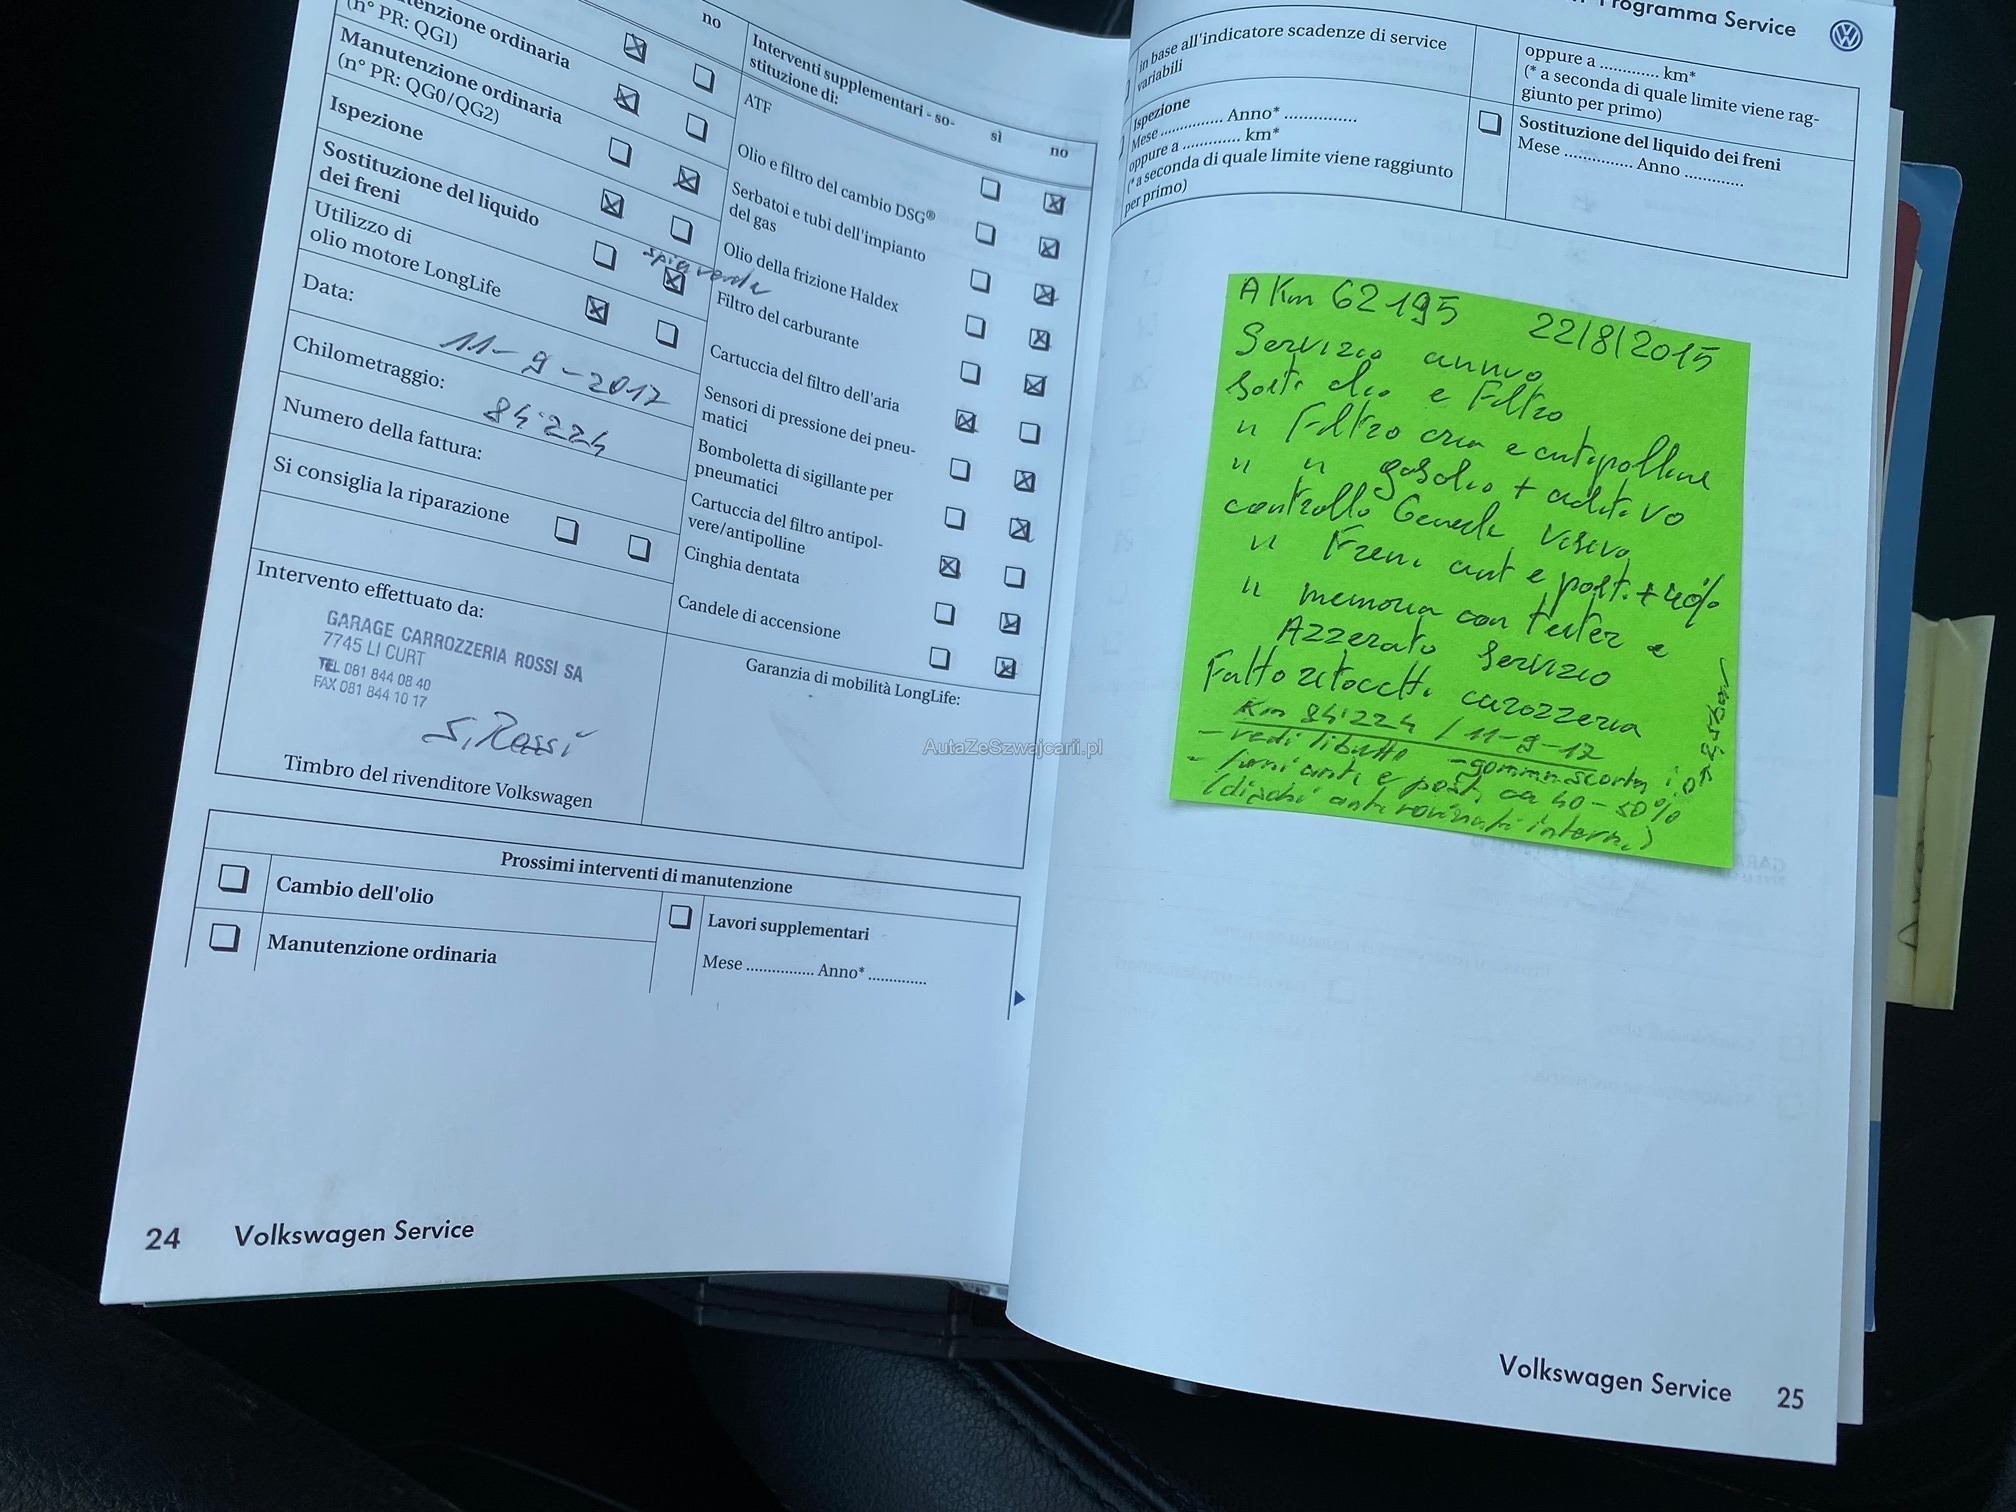 no
tenzione ordinaria
(n° PR: QG1)
Manutenzione ordinaria
(n° PR: QG0/QG2)
Ispezione
Sostituzione del liquido
dei freni
Utilizzo di
olio motore LongLife
Data:
11-9-2017
Chilometraggio:
84'224
Numero della fattura:
Si consiglia la riparazione
Intervento effettuato da:
GARAGE CARROZZERIA ROSSI SA
7745 LI CURT
TEL 081 844 08 40
FAX 081 844 10 17
S. Rossi
Timbro del rivenditore Volkswagen
Interventi supplementari - so-
stituzione di:
sì
no
ATF
Olio e filtro del cambio DSG®
Serbatoi e tubi dell'impianto
del gas
Olio della frizione Haldex
spia verde
Filtro del carburante
Cartuccia del filtro dell'aria
Sensori di pressione dei pneu-
matici
Bomboletta di sigillante per
pneumatici
Cartuccia del filtro antipol-
vere/antipolline
Cinghia dentata
Candele di accensione
Garanzia di mobilità LongLife:
Prossimi interventi di manutenzione
Cambio dell'olio
Manutenzione ordinaria
Lavori supplementari
Mese ................ Anno* ..............
24 Volkswagen Service
Programma Service
in base all'indicatore scadenze di service
variabili
Ispezione
Mese ............... Anno* .................
oppure a ............. km*
(* a seconda di quale limite viene raggiunto
per primo)
oppure a ............. km*
(* a seconda di quale limite viene rag-
giunto per primo)
Sostituzione del liquido dei freni
Mese ............... Anno .............
A Km 62195 22/8/2015
Servizio annuo
Sost. olio e Filtro
" Filtro aria e antipolline
" " gasolio + additivo
controllo Generale Visivo
" Freni ant e post. + 40%
" memoria con tester e
Azzerato Servizio
Fatto ritocchi carozzeria
Km 84'224 / 11-9-17
- vedi libretto - gomma scorta
- freni ant. e post. ca 40-50%
(dischi ant. rovinati interni)
AutaZeSzwajcarii.pl
Volkswagen Service 25